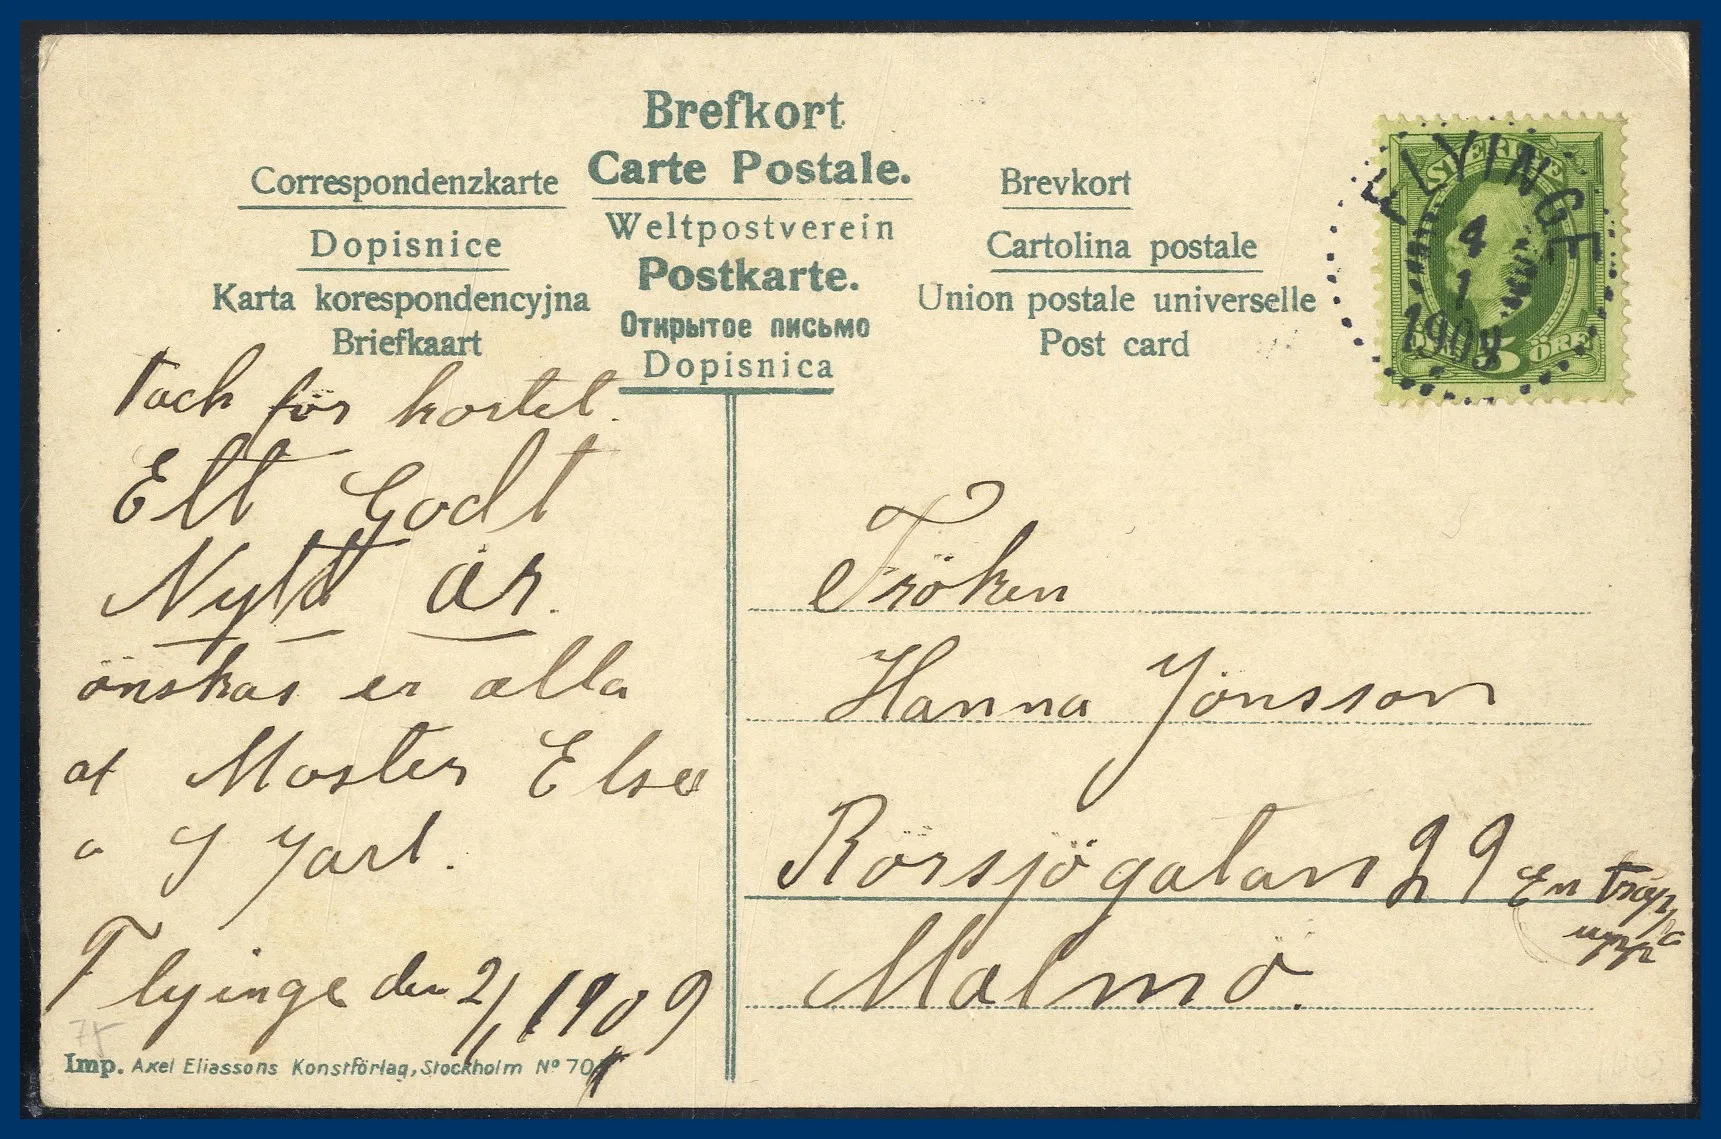 Brefkort
Carte Postale.
Correspondenzkarte
Brevkort
Weltpostverein
Dopisnice
Cartolina postale
Postkarte.
Karta korespondencyjna
Union postale universelle
Открытое письмо
Briefkaart
Post card
Dopisnica
FLYINGE
4
1
1909
SVERIGE
5 ÖRE
Tack för kortet.
Ett Godt
Nytt År.
önskas er alla
af Moster Elsa
o J Jarl.
Flyinge den 2/1 1909
Fröken
Hanna Jönsson
Rörsjögatan 29 En trappa
upp
Malmö.
Imp. Axel Eliassons Konstförlag, Stockholm Nº 70